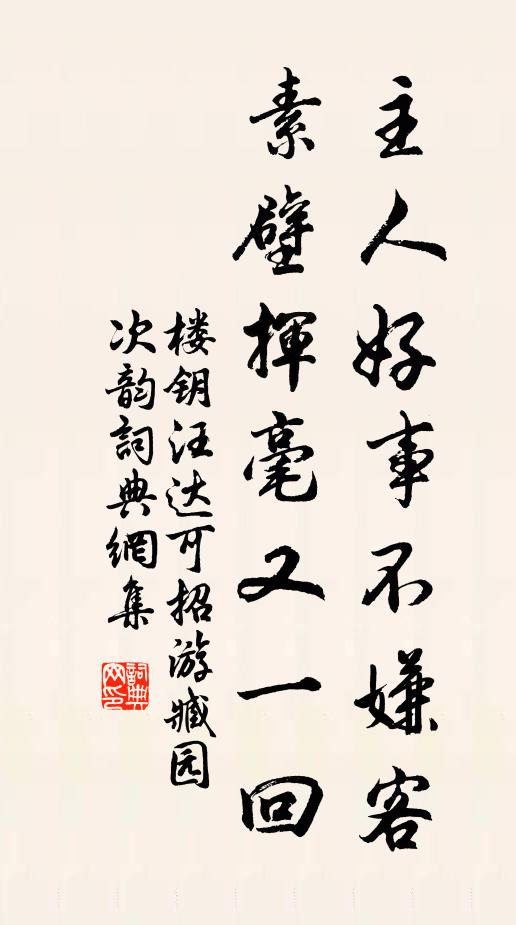 主人好事不嫌客
素壁揮毫又一回
楼钥汪达可招游臧园
次韵詞典網集
詞典
网印